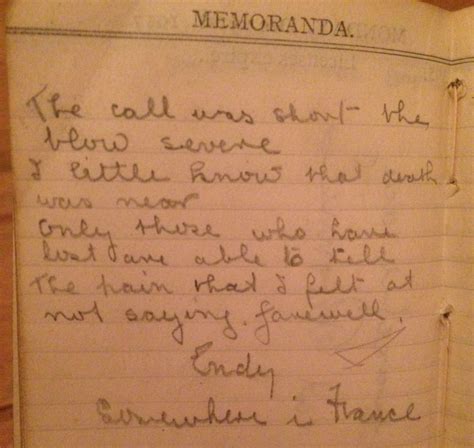 MEMORANDA.
The call was short the
blow severe
I little know that death
was near
only those who have
lost are able to tell
The pain that I felt at
not saying farewell.
Endy
Somewhere in France